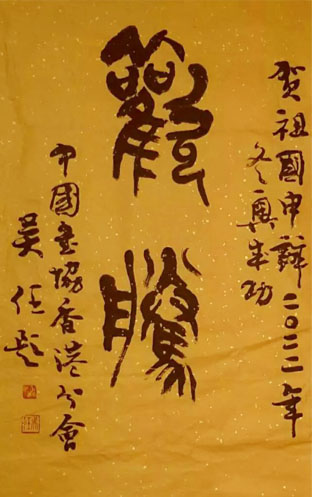 贺祖國申辦二〇二二年
冬奥成功
歡騰
中國書協香港分會
吴任题